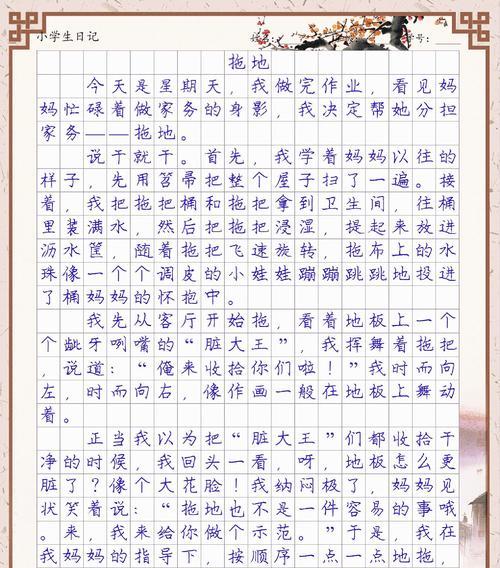 小学生日记
姓名： 学号：
拖地
今天是星期天，我做完作业，看见妈
妈忙碌着做家务的身影，我决定帮她分担
家务——拖地。
说干就干。首先，我学着妈妈以往的
样子，先用笤帚把整个屋子扫了一遍。接
着，我把拖把桶和拖把拿到卫生间，往桶
里装满水，然后把拖把浸湿，提起来放进
沥水筐，随着拖把飞速旋转，拖布上的水
珠像一个个调皮的小娃娃蹦蹦跳跳地投进
了桶妈妈的怀抱中。
我先从客厅开始拖，看着地板上一个
个龇牙咧嘴的“脏大王”，我挥舞着拖把
，说道：“俺来收拾你们啦！”我时而向
左，时而向右，像作画一般在地板上舞动
着。
正当我以为把“脏大王”们都收拾干
净的时候，我回头一看，呀，地板怎么更
脏了？像个大花脸！我纳闷极了，妈妈见
状笑着说：“拖地也不是一件容易的事哦
。来，我来给你做个示范。”于是，我在
我妈妈的指导下，按顺序一点一点地拖，